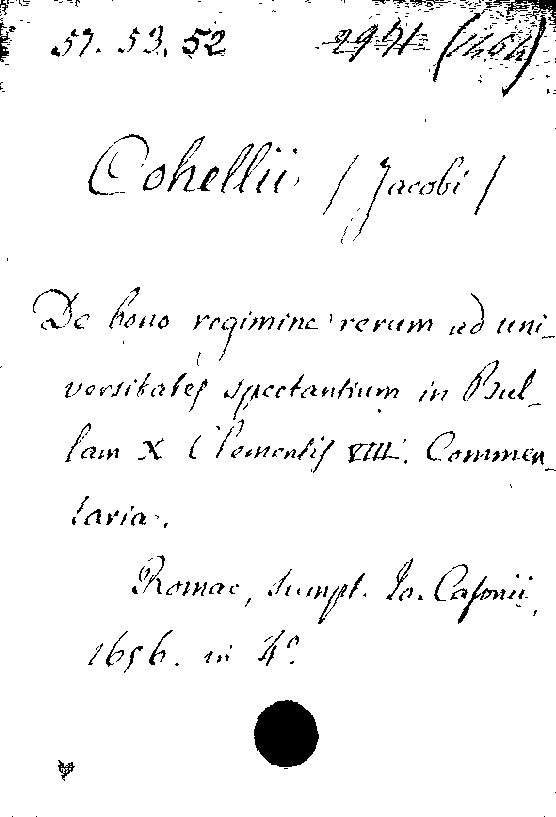 57. 53. 52 2941 (464)
Cohellii (Jacobi)
De bono regimine rerum ad uni-
versitates spectantium in Bul-
lam X Clementis VIII. Commen-
taria.
Romae, sumpt. Io. Casonii,
1656. in 4°.